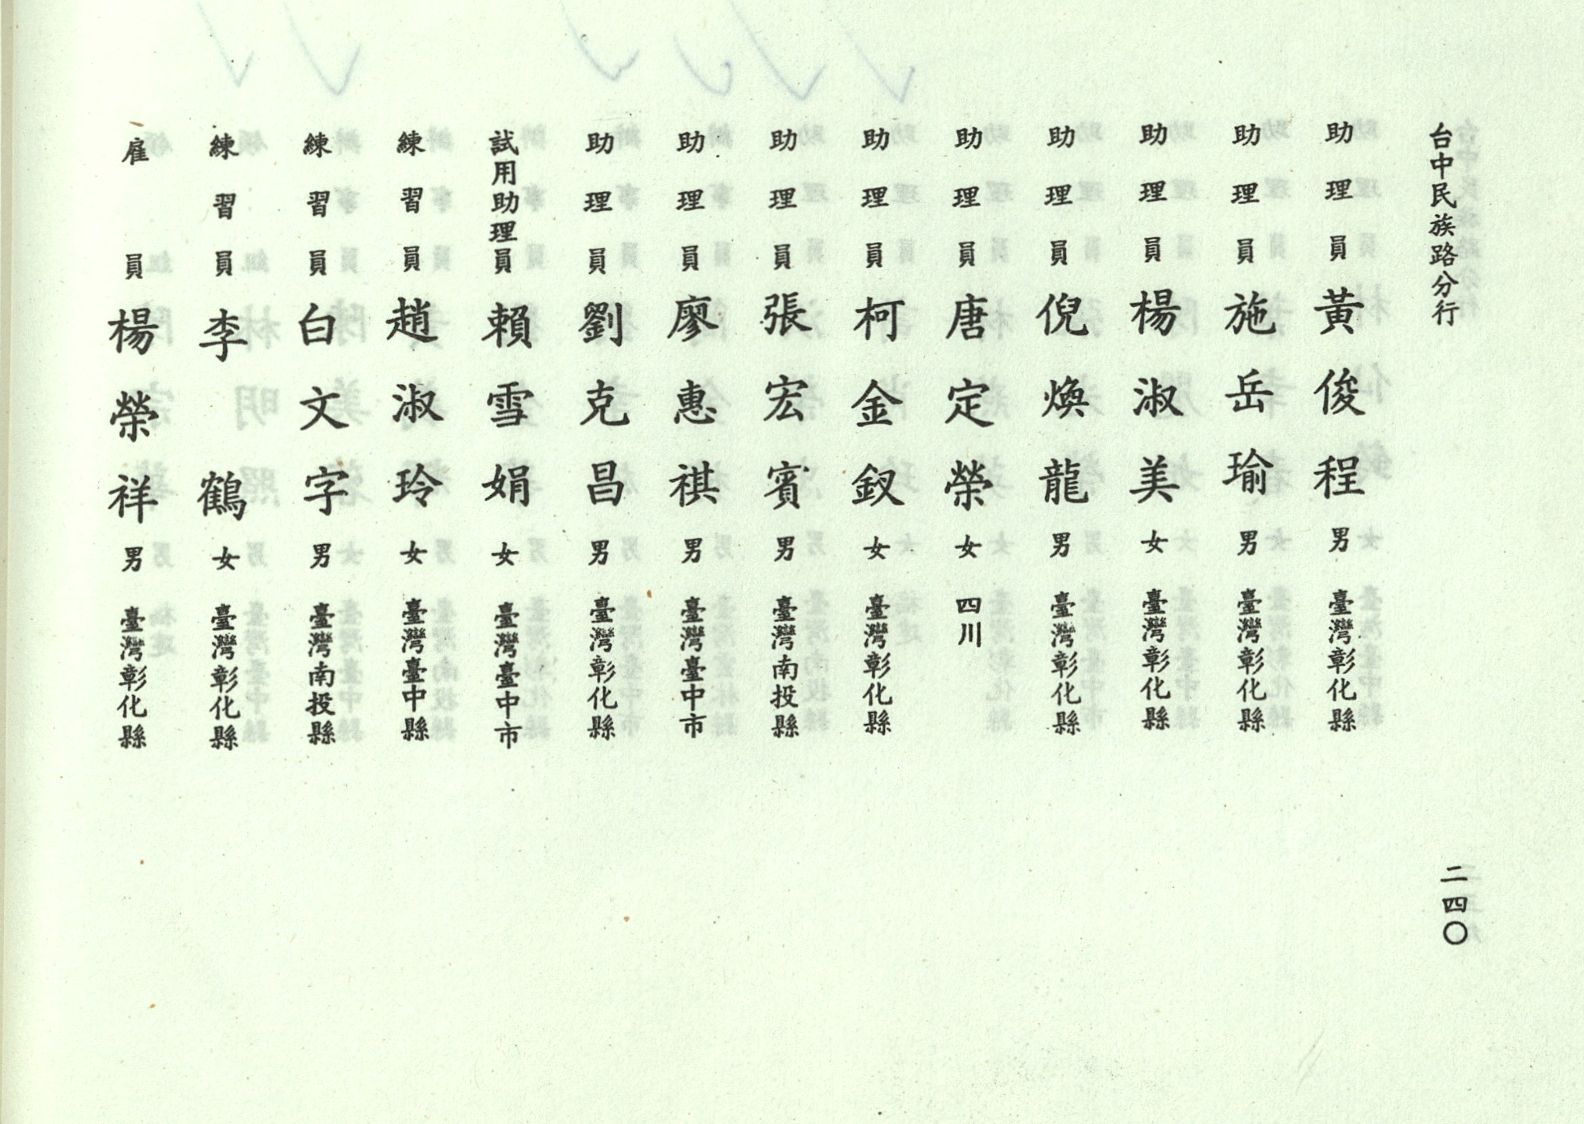 台中民族路分行
助理員 黃俊程 男 臺灣彰化縣
助理員 施岳瑜 男 臺灣彰化縣
助理員 楊淑美 女 臺灣彰化縣
助理員 倪煥龍 男 臺灣彰化縣
助理員 唐定榮 女 四川
助理員 柯金釵 女 臺灣彰化縣
助理員 張宏賓 男 臺灣南投縣
助理員 廖惠祺 男 臺灣臺中市
助理員 劉克昌 男 臺灣彰化縣
試用助理員 賴雪娟 女 臺灣臺中市
練習員 趙淑玲 女 臺灣臺中縣
練習員 白文字 男 臺灣南投縣
練習員 李鶴 女 臺灣彰化縣
雇員 楊榮祥 男 臺灣彰化縣
二四〇